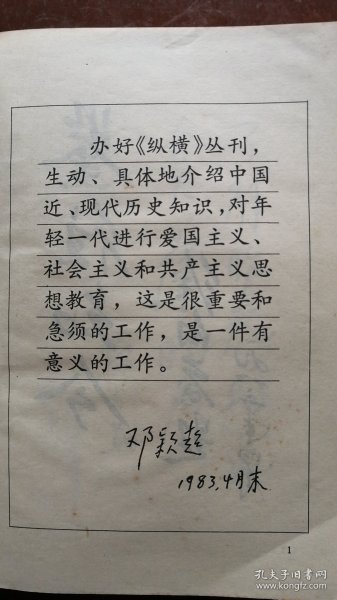 办好《纵横》丛刊，
生动、具体地介绍中国
近、现代历史知识，对年
轻一代进行爱国主义、
社会主义和共产主义思
想教育，这是很重要和
急须的工作，是一件有
意义的工作。
邓颖超
1983.4月末
1
孔夫子旧书网
www.kongfz.com